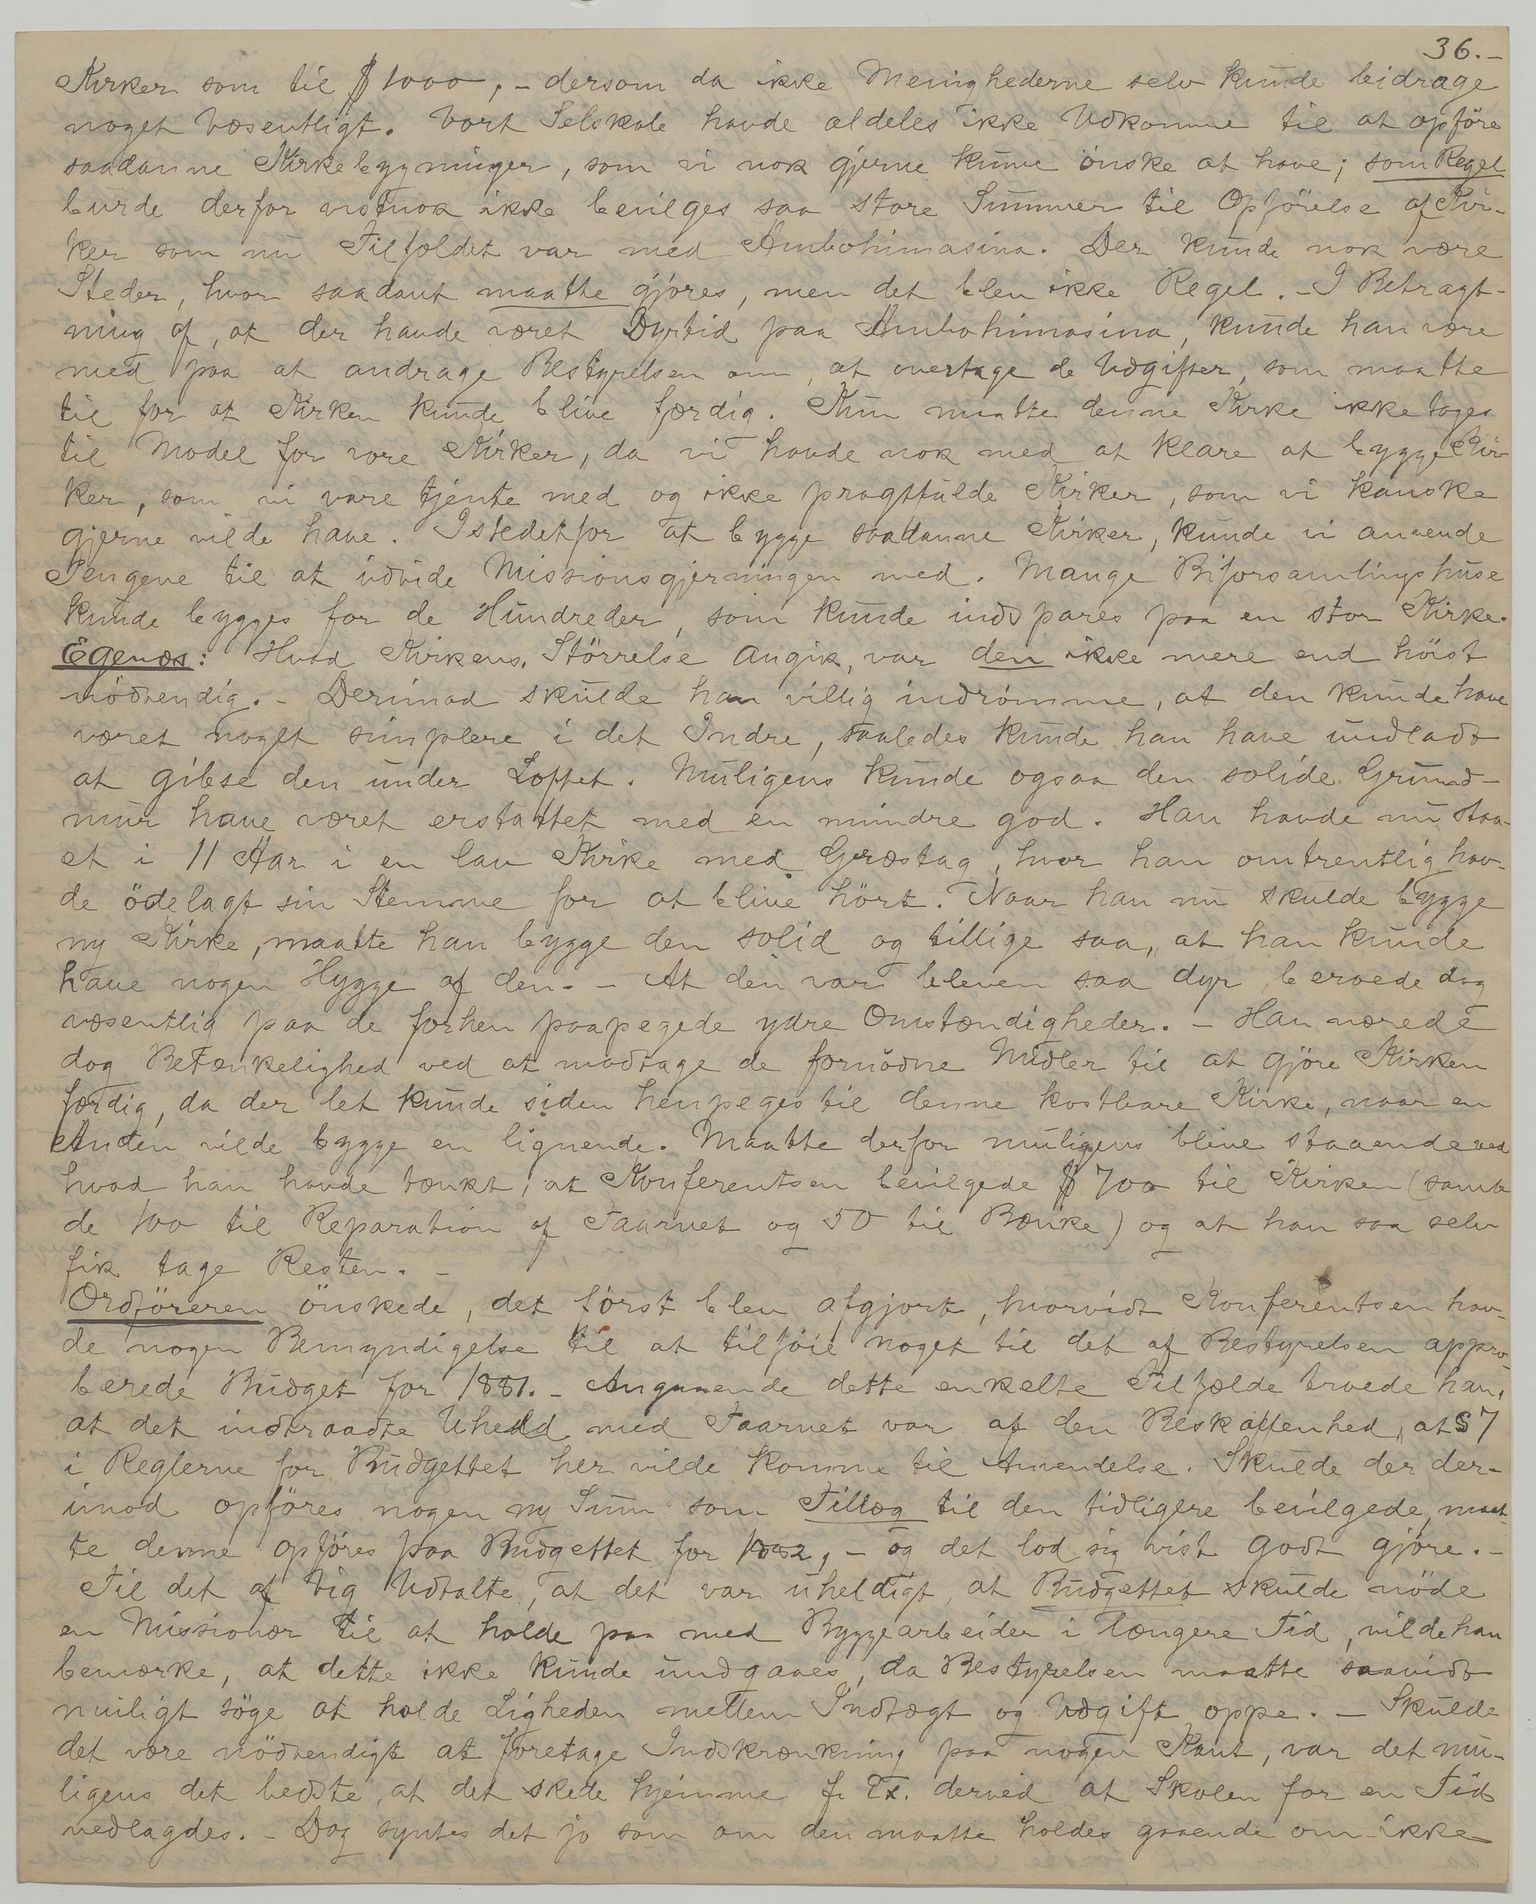 36.-
Kirker som til $1000,- dersom da ikke Menighederne selv kunde bidrage
noget Væsentligt. Vort Selskab havde aldeles ikke Udkomme til at opföre
saadanne Kirkebygninger, som vi nok gjerne kunne önske at have; som Regel
burde derfor vistnok ikke bevilges saa store Summer til Opförelse af Kir-
ker som nu Tilfældet var med Ambohimasina. Der kunde nok være
Steder, hvor saadant maatte gjöres, men det blev ikke Regel. - I Betragt-
ning af, at der havde været Dyrtid paa Ambohimasina, kunde han være
med paa at andrage Bestyrelsen om, at overtage de Udgifter, som maatte
til for at Kirken kunde blive færdig. Kun maatte denne Kirke ikke tages
til Model for vore Kirker, da vi havde nok med at klare at bygge Kir-
ker, som vi vare tjente med og ikke pragtfulde Kirker, som vi kanske
gjerne vilde have. Istedetfor at bygge saadanne Kirker, kunde vi anvende
Pengene til at udvide Missionsgjerningen med. Mange Biforsamlingshuse
kunde bygges for de Hundreder, som kunde indspares paa en stor Kirke.
Egenæs: Hvad Kirkens Störrelse angik, var den ikke mere end höist
nödvendig. - Derimod skulde han villig indrömme, at den kunde have
været noget simplere i det Indre, saaledes kunde han have undladt
at gibse den under Loftet. Muligens kunde ogsaa den solide Grund-
mur have været erstattet med en mindre god. Han havde nu staa-
et i 11 Aar i en lav Kirke med Græstag, hvor han omtrentlig hav-
de ödelagt sin Stemme for at blive hört. Naar han nu skulde bygge
ny Kirke, maatte han bygge den solid og tillige saa, at han kunde
have nogen Hygge af den. - At den var bleven saa dyr, beroede dog
væsentlig paa de forhen paapegede ydre Omstændigheder. - Han nærede
dog Betænkelighed ved at modtage de fornödne Midler til at gjöre Kirken
færdig, da der let kunde siden henpeges til denne kostbare Kirke, naar en
Anden vilde bygge en lignende. Maatte derfor muligens blive staaende ved
hvad han havde tænkt, at Konferentsen bevilgede $ 700 til Kirken (samt
de 100 til Reparation af Taarnet og 50 til Bænke) og at han saa selv
fik tage Resten. -
Ordföreren önskede, det först blev afgjort, hvorvidt Konferentsen hav-
de nogen Bemyndigelse til at tilföie noget til det af Bestyrelsen appro-
berede Budget for 1881. - Angaaende dette enkelte Tilfælde troede han,
at det indtraadte Uheld med Taarnet var af den Beskaffenhed, at § 7
i Reglerne for Budgettet her vilde komme til Anvendelse. Skulde der der-
imod opföres nogen ny Sum som Tillæg til den tidligere bevilgede, maat-
te denne opföres paa Budgettet for 1882, - og det lod sig vist godt gjöre. -
Til det af Vig Udtalte, at det var uheldigt, at Budgettet skulde nöde
en Missionær til at holde paa med Byggearbeider i længere Tid, vilde han
bemærke, at dette ikke kunde undgaaes, da Bestyrelsen maatte saavidt
muligt söge at holde Ligheden mellem Indtægt og Udgift oppe. - Skulde
det være nödvendigt at foretage Indskrænkning paa nogen Kant, var det mu-
ligens det bedste, at det skede hjemme f. Ex. derved at Skolen for en Tid
nedlagdes. - Dog syntes det jo som om den maatte holdes gaaende om ikke